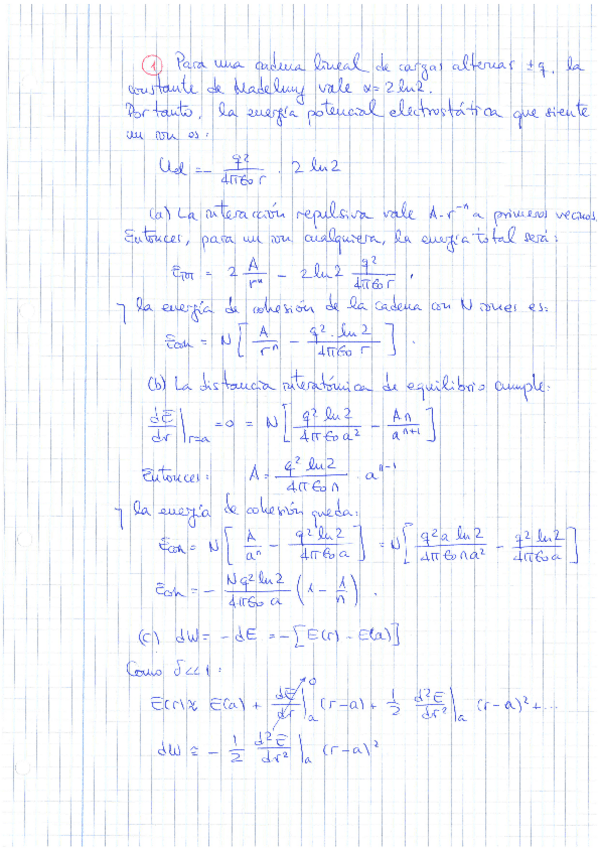 ① Para una cadena lineal de cargas alternas ±q, la
constante de Madelung vale α = 2 ln 2.
Por tanto, la energía potencial electrostática que siente
un ion es:
Uel = - q²/(4πε₀r) · 2 ln 2
(a) La interacción repulsiva vale A·r⁻ⁿ a primeros vecinos.
Entonces, para un ion cualquiera, la energía total será:
Etot = 2 A/rⁿ - 2 ln 2 q²/(4πε₀r).
y la energía de cohesión de la cadena con N iones es:
Ecoh = N [ A/rⁿ - q²·ln 2/(4πε₀ r) ].
(b) La distancia interatómica de equilibrio cumple:
dE/dr |r=a = 0 = N [ q² ln 2/(4πε₀a²) - An/aⁿ⁺¹ ]
Entonces: A = q² ln 2/(4πε₀n) · aⁿ⁻¹
y la energía de cohesión queda:
Ecoh = N [ A/aⁿ - q² ln 2/(4πε₀a) ] = N [ q²a ln 2/(4πε₀na²) - q² ln 2/(4πε₀a) ]
Ecoh = - Nq² ln 2/(4πε₀ a) (1 - 1/n).
(c) dW = - dE = - [E(r) - E(a)]
Como δ<<1:
E(r) ≈ E(a) + dE/dr |a (r-a) + 1/2 d²E/dr² |a (r-a)² + ...
0
dW ≅ - 1/2 d²E/dr² |a (r-a)²